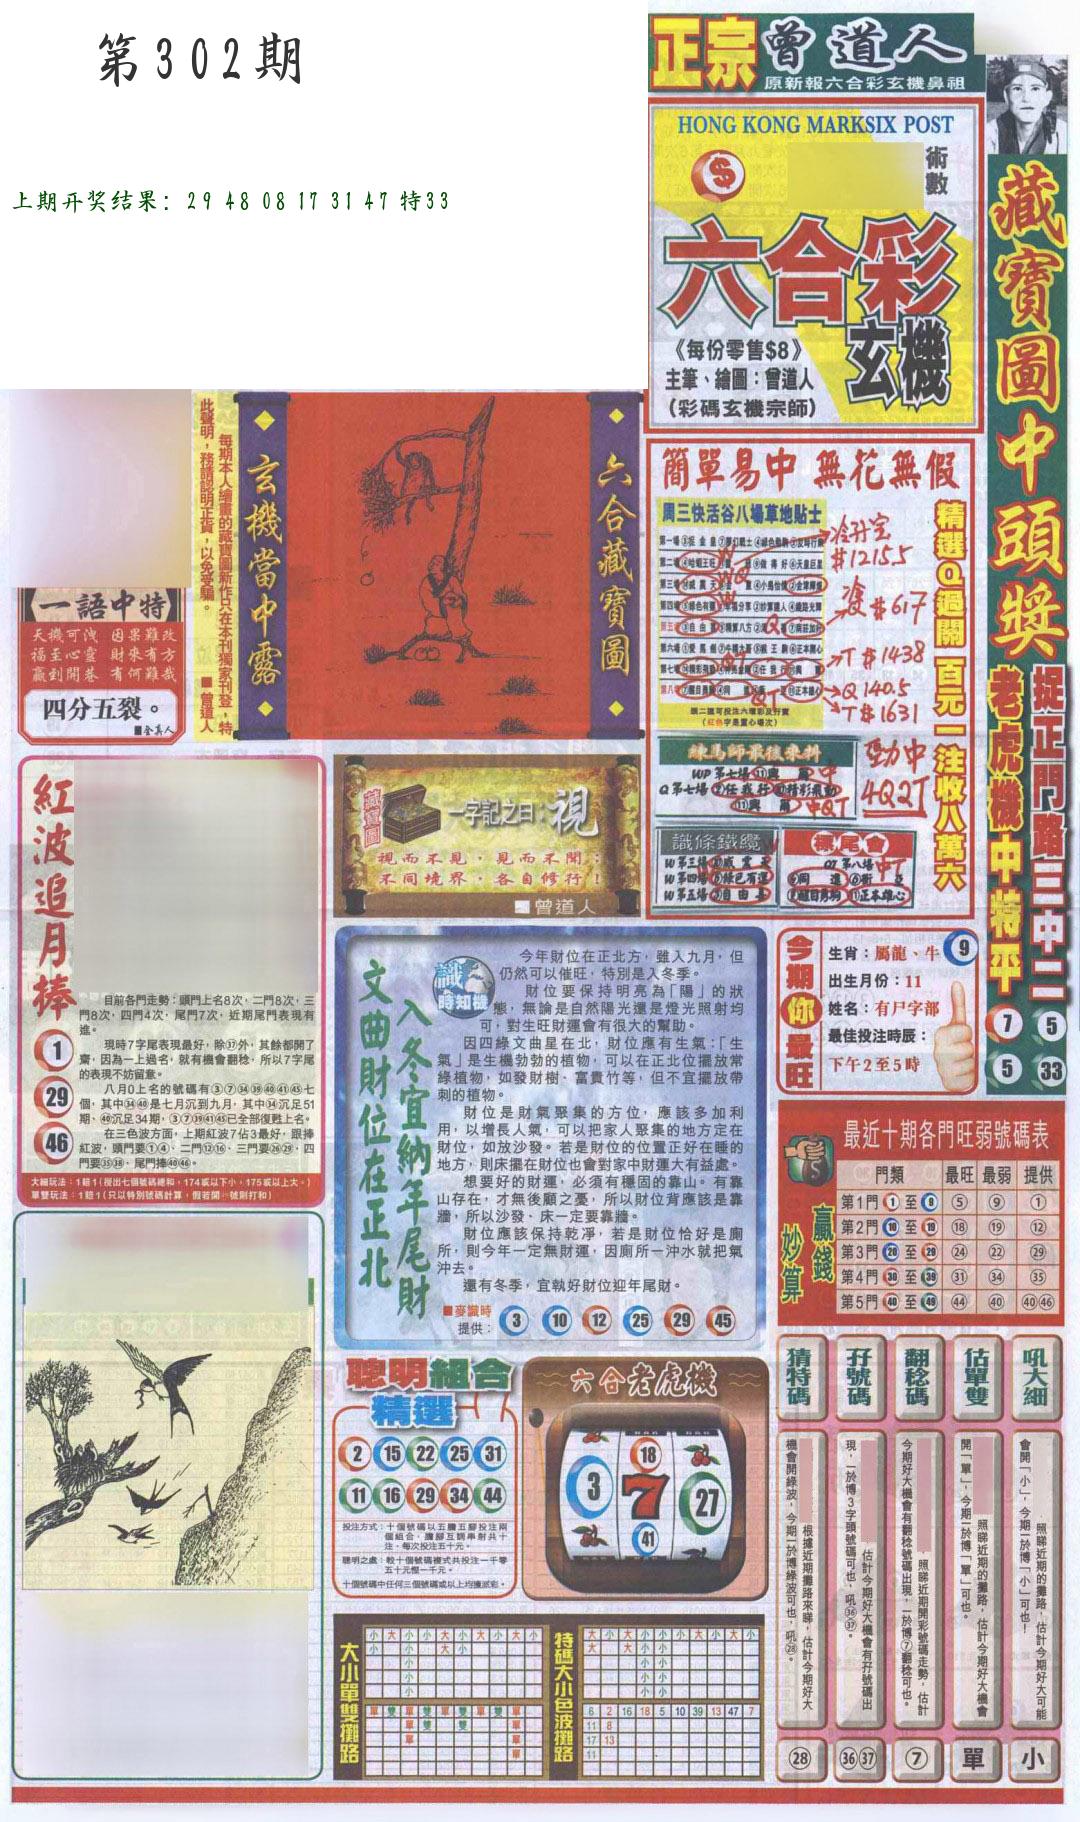 第302期
上期开奖结果：29 48 08 17 31 47 特33
正宗曾道人
原新報六合彩玄機鼻祖
HONG KONG MARKSIX POST
術數
六合彩
玄機
《每份零售$8》
主筆、繪圖：曾道人
（彩碼玄機宗師）
藏寶圖中頭獎
捉正門路三中二
老虎機中特平
7 5
5 33
每期本人繪畫的藏寶圖新作只在本刊獨家刊登，特
此聲明，務請認明正貨，以免受騙。
■曾道人
玄機當中露
六合藏寶圖
【一語中特】
天機可洩 因果難改
福至心靈 財來有方
贏到開巷 有何難哉
四分五裂。
簡單易中 無花無假
周三快活谷八場草地貼士
冷升宝
#12155
#617
T #1438
Q 140.5
T #1631
頭二區可投注六環彩及孖寶
（紅色字是重心場次）
精選Q過關 百元一注收八萬六
練馬師最後來料
WP 第七場
Q 第七場
勁中
4Q2T
識條鐵纜
W 第三場
W 第四場
W 第五場
QT 第八場
藏寶圖
一字記之曰：視
視而不見，見而不聞；
不同境界，各自修行！
曾道人
紅波追月棒
1
29
46
目前各門走勢：頭門上名8次，二門8次，三
門8次，四門4次，尾門7次，近期尾門表現有
進。
現時7字尾表現最好，除㊲外，其餘都開了
齋，因為一上過名，就有機會翻稔，所以7字尾
的表現不妨留意。
八月0上名的號碼有③⑦㉞㊴㊵㊶㊺七
個，其中㉞㊵是七月沉到九月，其中㉞沉足51
期、㊵沉足34期，③⑦㊴㊶㊺已全部復甦上名。
在三色波方面，上期紅波7佔3最好，跟捧
紅波，頭門要①④、二門⑫⑯、三門要㉖㉙、四
門要㉟㊳、尾門捧㊵㊻。
大細玩法：1賠1（攪出七個號碼總和，174或以下小，175或以上大。）
單雙玩法：1賠1（只以特別號碼計算，假若開㊾號則打和）
文曲財位在正北
入冬宜納年尾財
識時知機
今年財位在正北方，雖入九月，但
仍然可以催旺，特別是入冬季。
財位要保持明亮為「陽」的狀
態，無論是自然陽光還是燈光照射均
可，對生旺財運會有很大的幫助。
因四綠文曲星在北，財位應有生氣：「生
氣」是生機勃勃的植物，可以在正北位擺放常
綠植物，如發財樹、富貴竹等，但不宜擺放帶
刺的植物。
財位是財氣聚集的方位，應該多加利
用，以增長人氣，可以把家人聚集的地方定在
財位，如放沙發。若是財位的位置正好在睡的
地方，則床擺在財位也會對家中財運大有益處。
想要好的財運，必須有穩固的靠山。有靠
山存在，才無後顧之憂，所以財位背應該是靠
牆，所以沙發、床一定要靠牆。
財位應該保持乾淨，若是財位恰好是廁
所，則今年一定無財運，因廁所一沖水就把氣
沖去。
還有冬季，宜執好財位迎年尾財。
■麥識時
提供： 3 10 12 25 29 45
今期你最旺
生肖：屬龍、牛 9
出生月份：11
姓名：有尸字部
最佳投注時辰：
下午2至5時
最近十期各門旺弱號碼表
贏錢妙算
門類 最旺 最弱 提供
第1門 1 至 9 ⑤ ⑨ ①
第2門 10 至 19 ⑱ ⑲ ⑫
第3門 20 至 29 ㉔ ㉒ ㉙
第4門 30 至 39 ㉛ ㉞ ㉟
第5門 40 至 49 ㊹ ㊵ ㊵㊻
聰明組合
精選
2 15 22 25 31
11 16 29 34 44
投注方式：十個號碼以五膽五腳投注兩
個組合，膽腳互調串射共十
注，每次投注五十元。
聰明之處：較十個號碼複式共投注一千零
五十元慳一千元。
十個號碼中任何三個號碼或以上均獲派彩。
六合老虎機
3 18 7 27 41
大小單雙攤路
特碼大小色波攤路
6 2 16 18 5 10 39 13 47 7
11 8
17 13
11
猜特碼
根據近期攤路來睇，估計今期好大
機會開綠波，今期一於博綠波可也，吼㉘。
㉘
孖號碼
估計今期好大機會有孖號碼出
現，一於博3字頭號碼可也，吼㊱㊲。
㊱㊲
翻稔碼
照睇近期開彩號碼走勢，估計
今期好大機會有翻稔號碼出現，一於博⑦翻稔可也。
⑦
估單雙
照睇近期的攤路，估計今期好大機會
開「單」，今期一於博「單」可也。
單
吼大細
照睇近期的攤路，估計今期好大可能
會開「小」，今期一於博「小」可也！
小